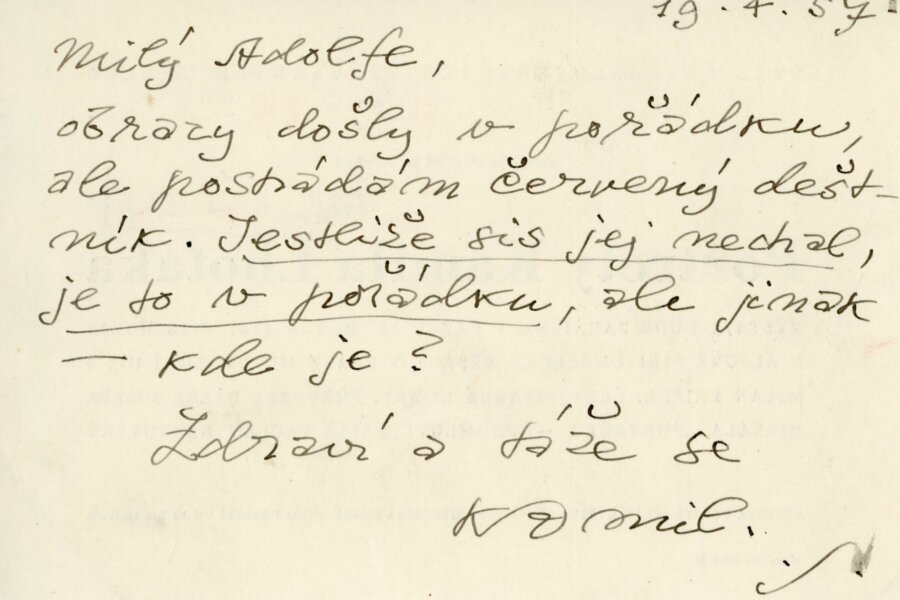 19.4.57.
Milý Adolfe,
obrazy došly v pořádku,
ale postrádám červený dešt-
ník. Jestliže sis jej nechal,
je to v pořádku, ale jinak
— kde je?
Zdraví a táže se
Kamil.